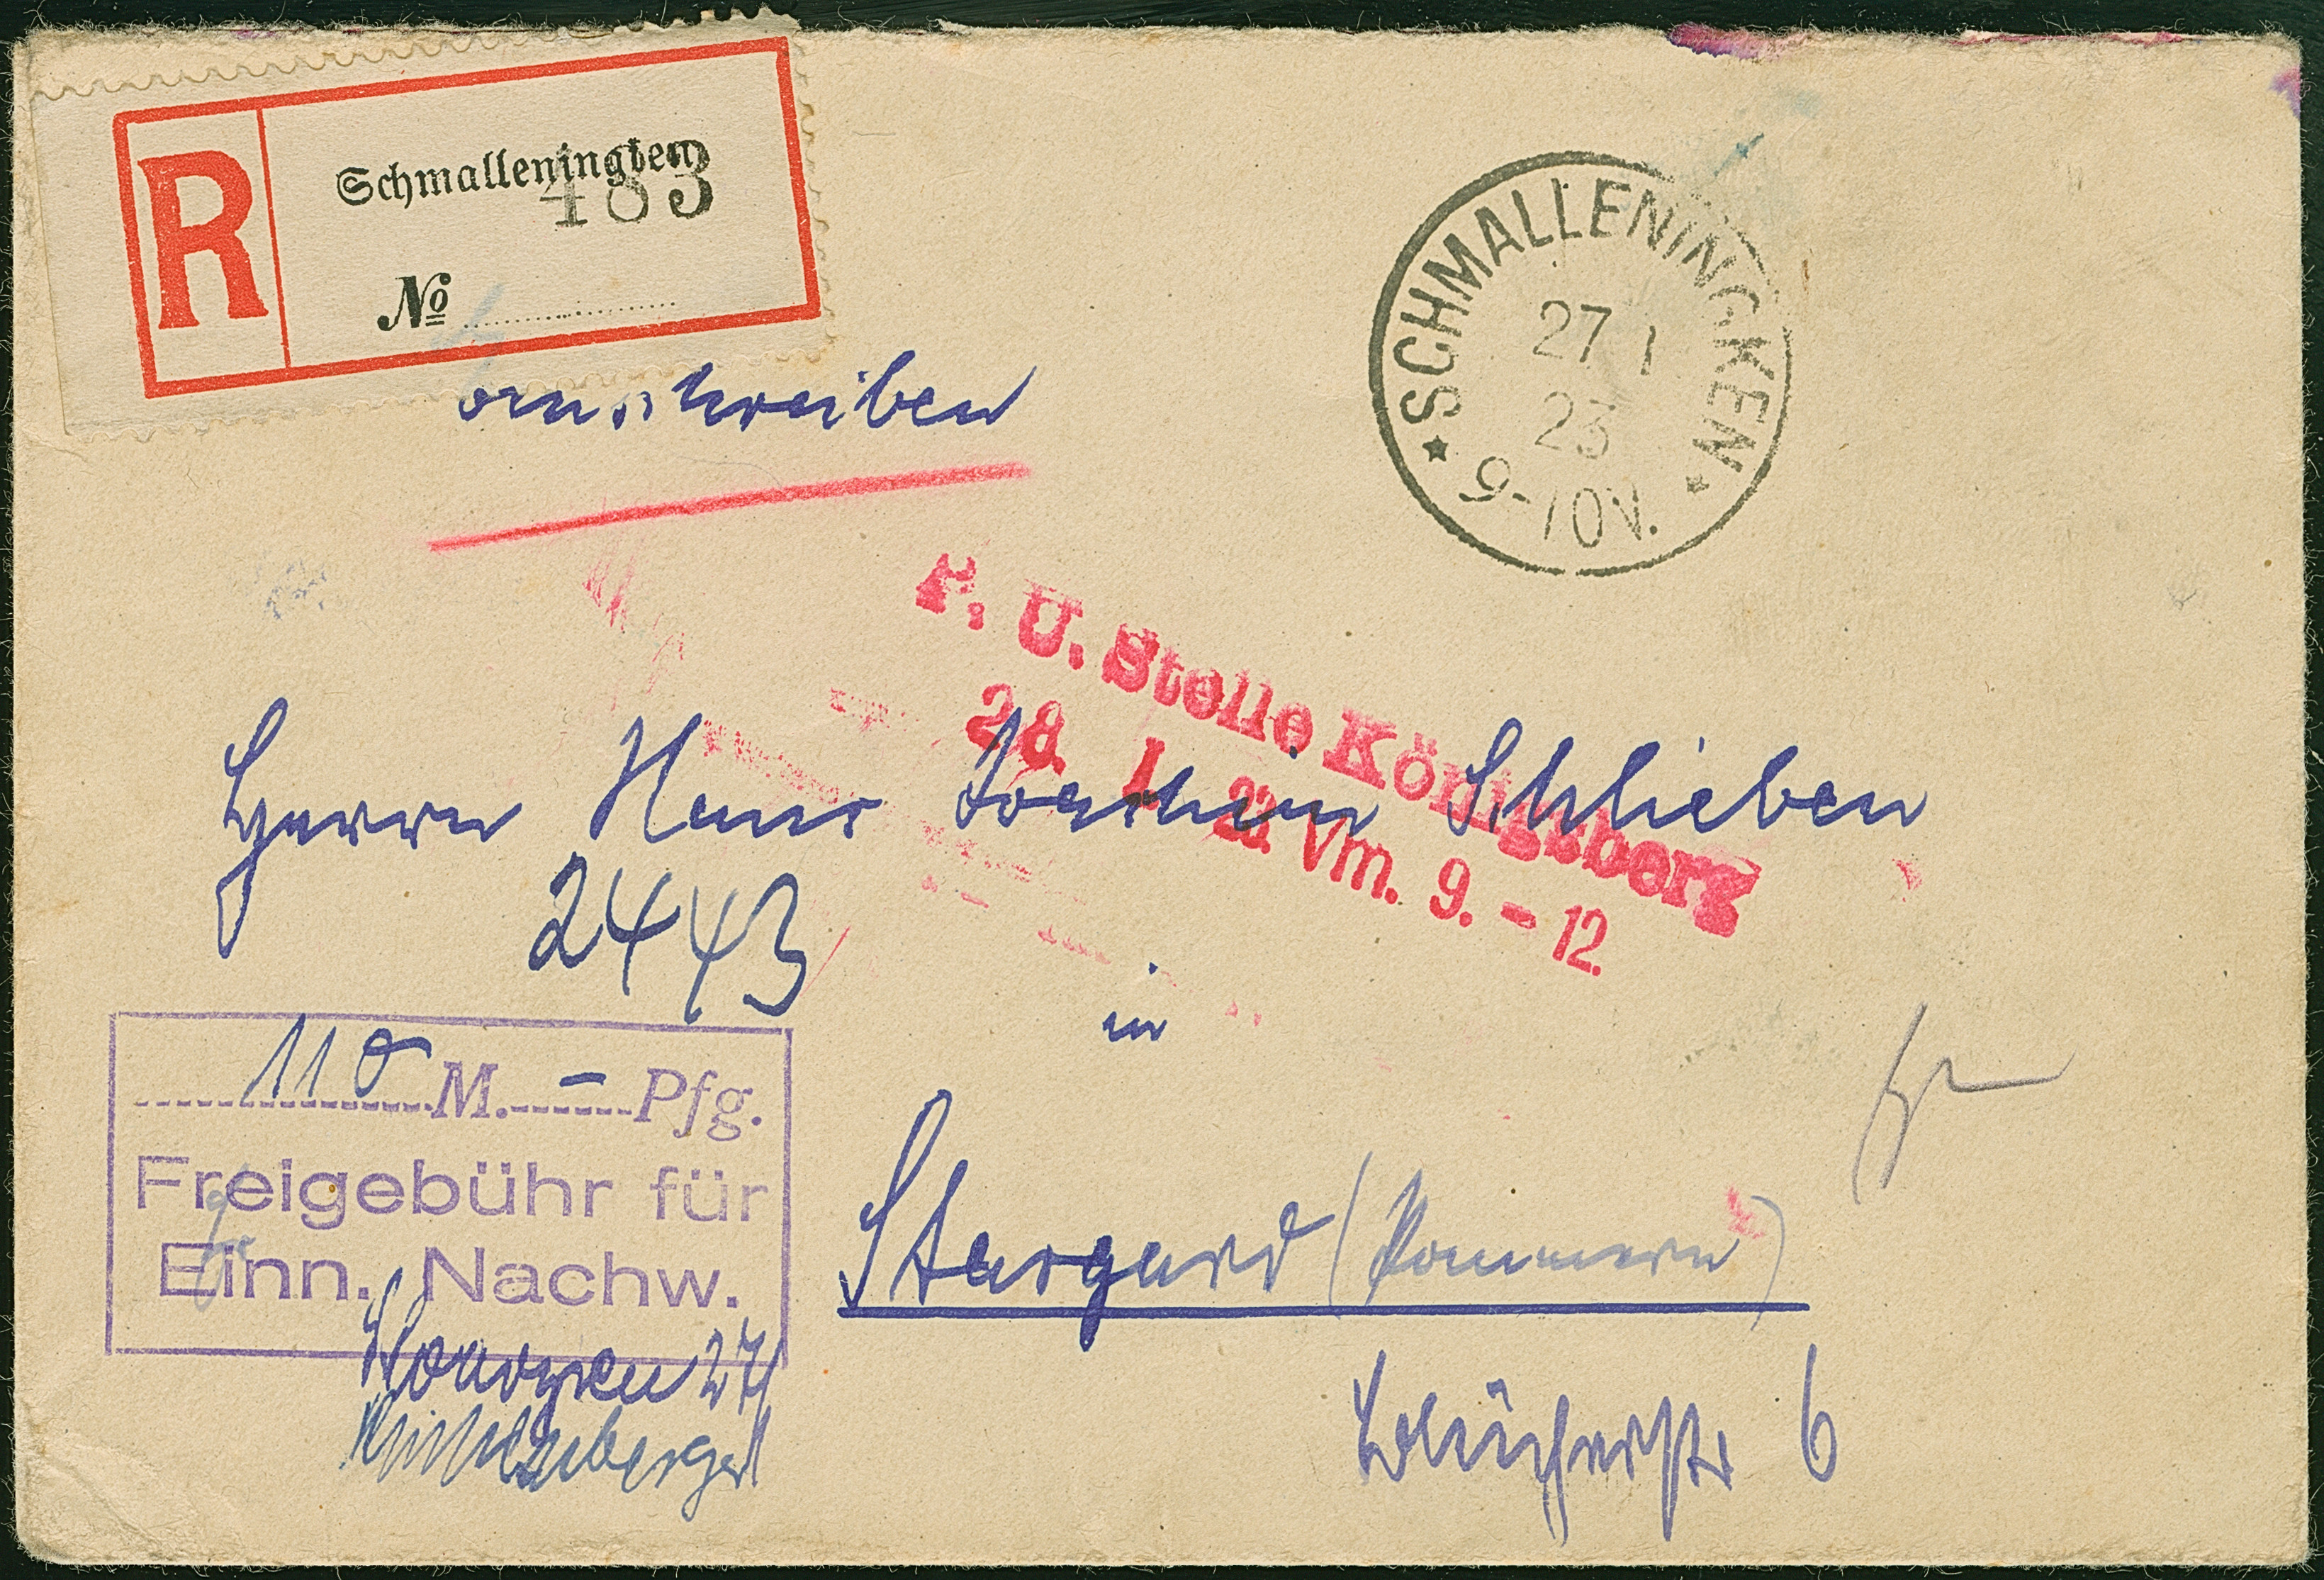 R
Schmalleningken
483
No
SCHMALLENINGKEN
27 1
23
9-10V.
schreiben
P. U. Stelle Königsberg
28. 1. 23. Vm. 9. - 12.
Herrn Hans Joachim Schlieben
2443
in
110 M. - Pfg.
Freigebühr für
Einn. Nachw.
Stargard (Pommern)
27/1
Blücherstr 6